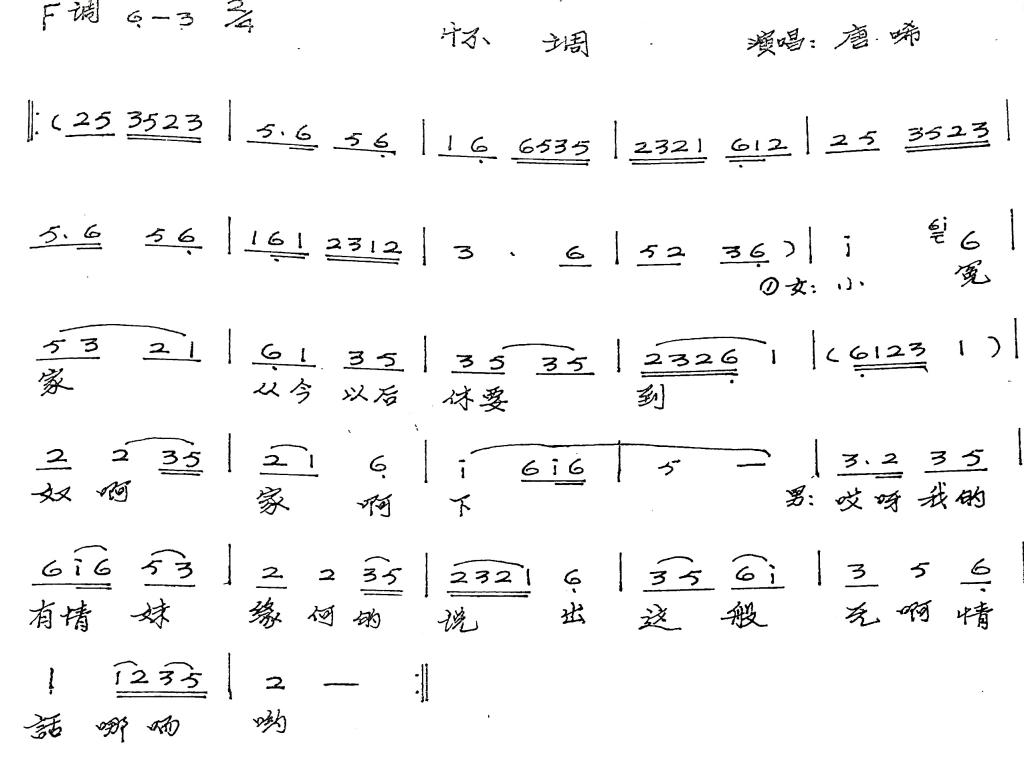 F调 6—3 2/4
怀调 演唱：唐唏
‖: (25 3523 | 5.6 56 | 16 6535 | 2321 612 | 25 3523 |
5.6 56 | 161 2312 | 3 . 6 | 52 36) | i 6i 6 |
①女：小 冤
53 21 | 61 35 | 35 35 | 2326 1 | (6123 1) |
家 从今 以后 休要 到
2 2 35 | 21 6 | i 6i6 | 5 — | 3.2 35 |
奴 啊 家 啊 下 男：哎呀我的
6i6 53 | 2 2 35 | 2321 6 | 35 6i | 3 5 6 |
有情 妹 缘 何 的 说 出 这 般 无 啊 情
1 1235 | 2 — :‖
話 哪 哟